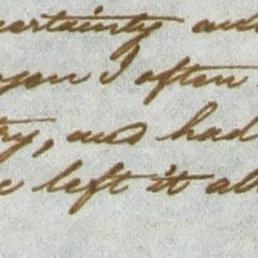 certainty and
you I often
try, and had
left it all